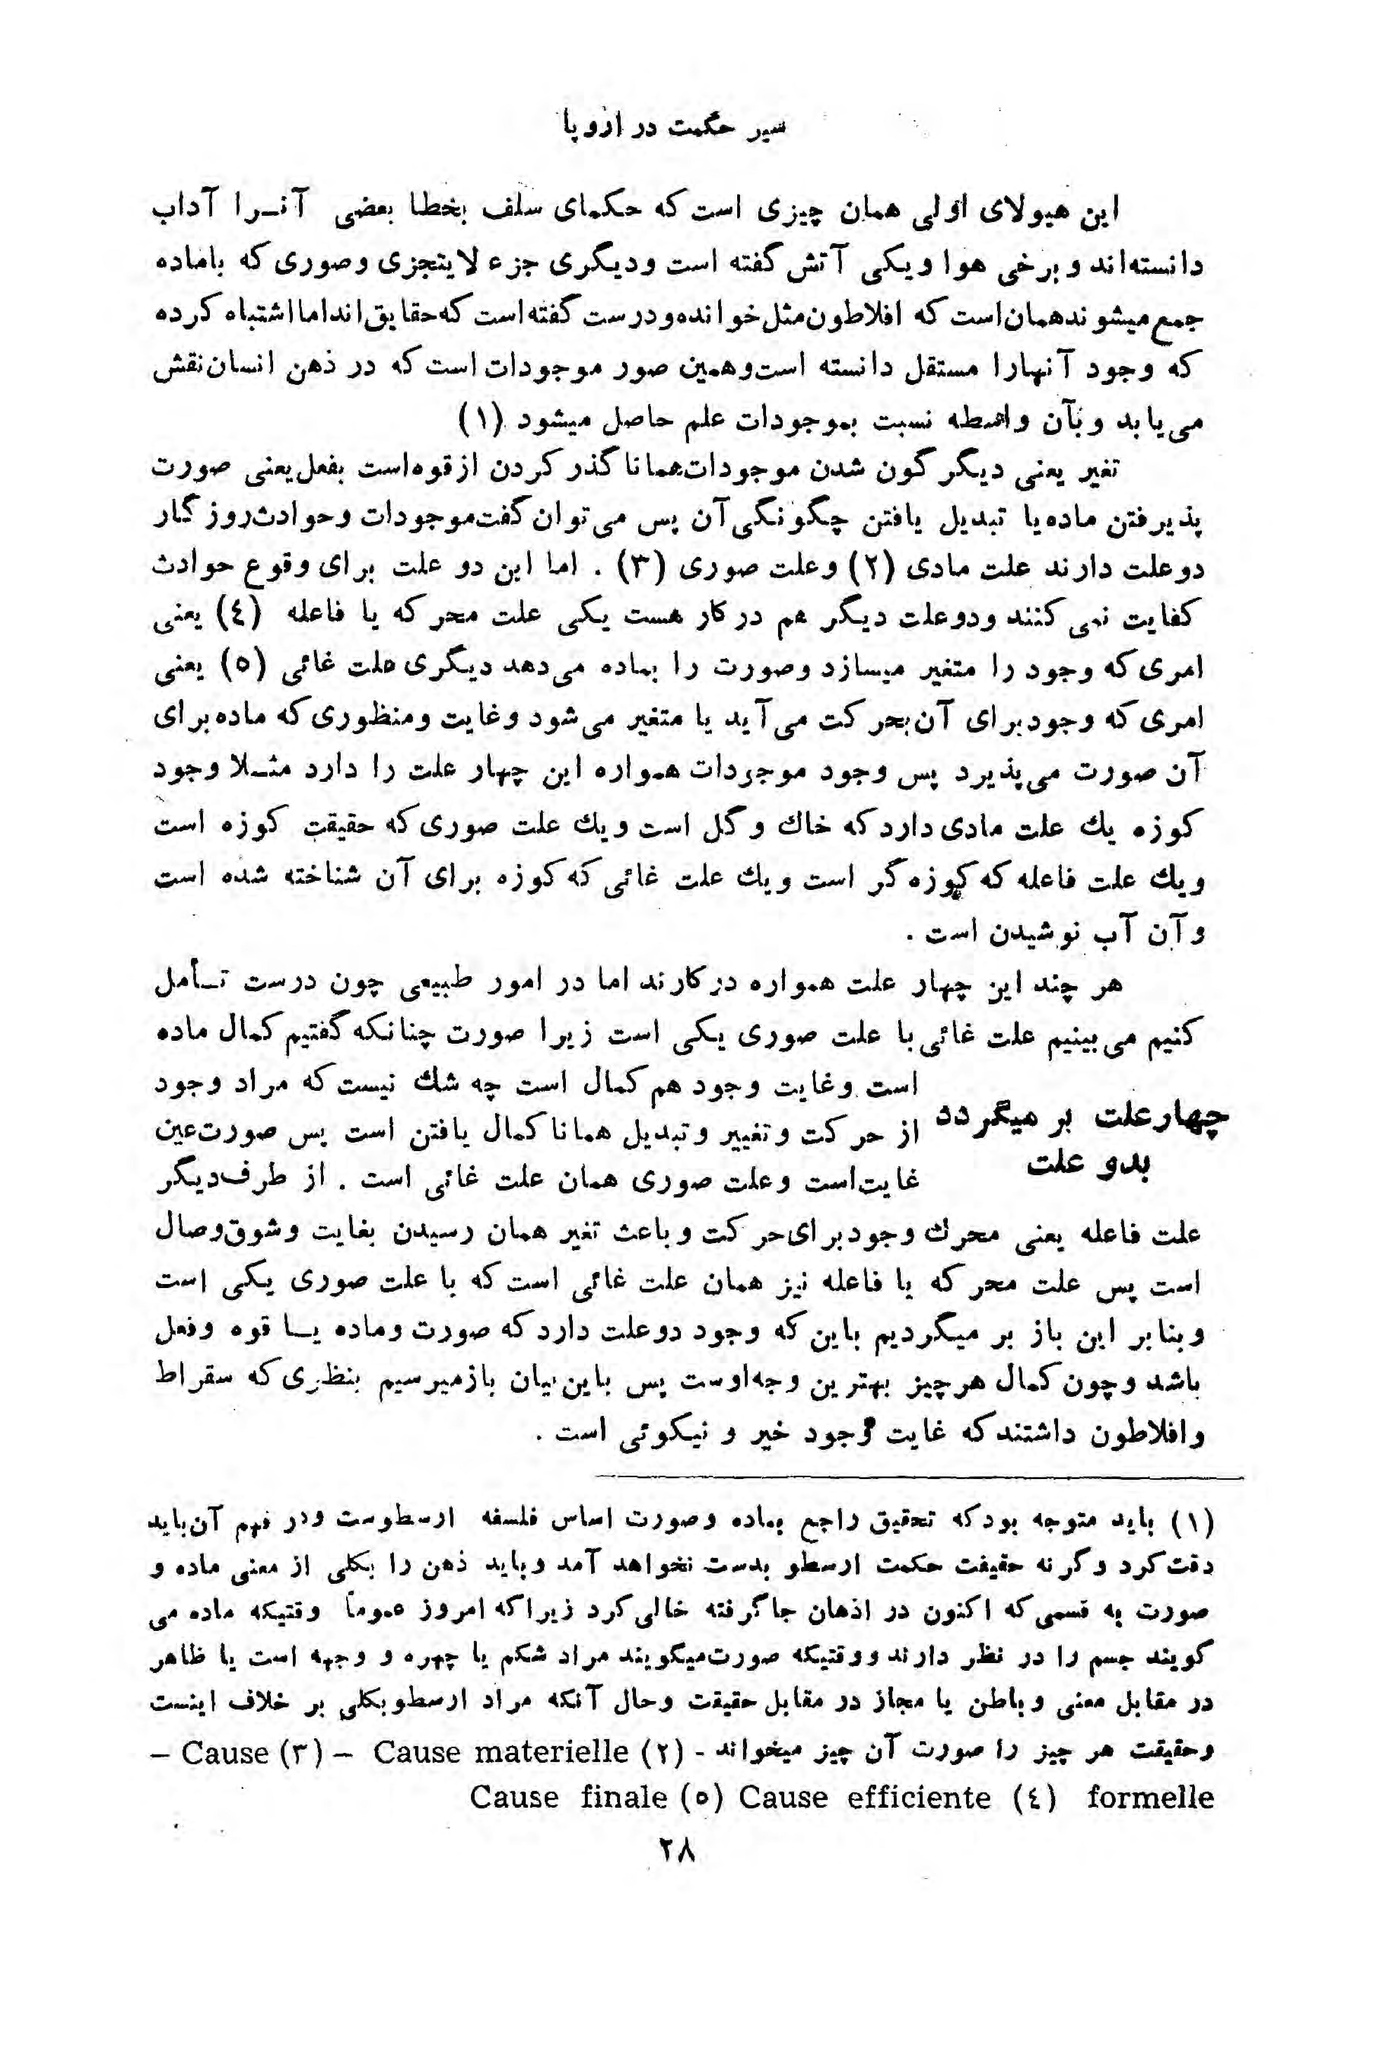 سیر حکمت در اروپا
این هیولای اولی همان چیزی است که حکمای سلف بخطا بعضی آنـرا آداب
دانسته‌اند و برخی هوا و یکی آتش گفته است و دیگری جزء لایتجزی و صوری که باماده
جمع میشوند همان است که افلاطون مثل خوانده و درست گفته است که حقایق‌اند اما اشتباه کرده
که وجود آنهارا مستقل دانسته است و همین صور موجودات است که در ذهن انسان نقش
می‌یابد و بآن واسطه نسبت بموجودات علم حاصل میشود (۱)
تغیر یعنی دیگر گون شدن موجودات همانا گذر کردن از قوه است بفعل یعنی صورت
پذیرفتن ماده یا تبدیل یافتن چگونگی آن پس می‌توان گفت موجودات و حوادث روز گار
دو علت دارند علت مادی (۲) و علت صوری (۳) . اما این دو علت برای وقوع حوادث
کفایت نمی کنند و دو علت دیگر هم در کار هست یکی علت محر که یا فاعله (٤) یعنی
امری که وجود را متغیر میسازد و صورت را بماده می‌دهد دیگری علت غائی (٥) یعنی
امری که وجود برای آن بحر کت می‌آید یا متغیر می‌شود و غایت و منظوری که ماده برای
آن صورت می‌پذیرد پس وجود موجودات همواره این چهار علت را دارد مثـلا وجود
کوزه یك علت مادی دارد که خاك و گل است و یك علت صوری که حقیقت کوزه است
و یك علت فاعله که کوزه گر است و یك علت غائی که کوزه برای آن شناخته شده است
و آن آب نوشیدن است .
هر چند این چهار علت همواره در کارند اما در امور طبیعی چون درست تـأمل
کنیم می‌بینیم علت غائی با علت صوری یکی است زیرا صورت چنانکه گفتیم کمال ماده
است و غایت وجود هم کمال است چه شك نیست که مراد وجود
چهار علت بر میگردد
از حر کت و تغییر و تبدیل همانا کمال یافتن است پس صورت عین
بدو علت
غایت است و علت صوری همان علت غائی است . از طرف دیگر
علت فاعله یعنی محرك وجود برای حر کت و باعث تغیر همان رسیدن بغایت و شوق وصال
است پس علت محر که یا فاعله نیز همان علت غائی است که با علت صوری یکی است
و بنابر این باز بر میگردیم باین که وجود دو علت دارد که صورت و ماده یـا قوه و فعل
باشد و چون کمال هر چیز بهترین وجه اوست پس باین بیان باز میرسیم بنظری که سقراط
و افلاطون داشتند که غایت وجود خیر و نیکوئی است .
(۱) باید متوجه بود که تحقیق راجع بماده و صورت اساس فلسفه ارسطوست و در فهم آن باید
دقت کرد و گر نه حقیقت حکمت ارسطو بدست نخواهد آمد و باید ذهن را بکلی از معنی ماده و
صورت به قسمی که اکنون در اذهان جا گرفته خالی کرد زیرا که امروز عموماً وقتیکه ماده می
گویند جسم را در نظر دارند و وقتیکه صورت میگویند مراد شکم یا چهره و وجهه است یا ظاهر
در مقابل معنی و باطن یا مجاز در مقابل حقیقت و حال آنکه مراد ارسطو بکلی بر خلاف اینست
و حقیقت هر چیز را صورت آن چیز میخواند - (۲) Cause materielle – (۳) Cause –
formelle (٤) Cause efficiente (٥) Cause finale
۲۸